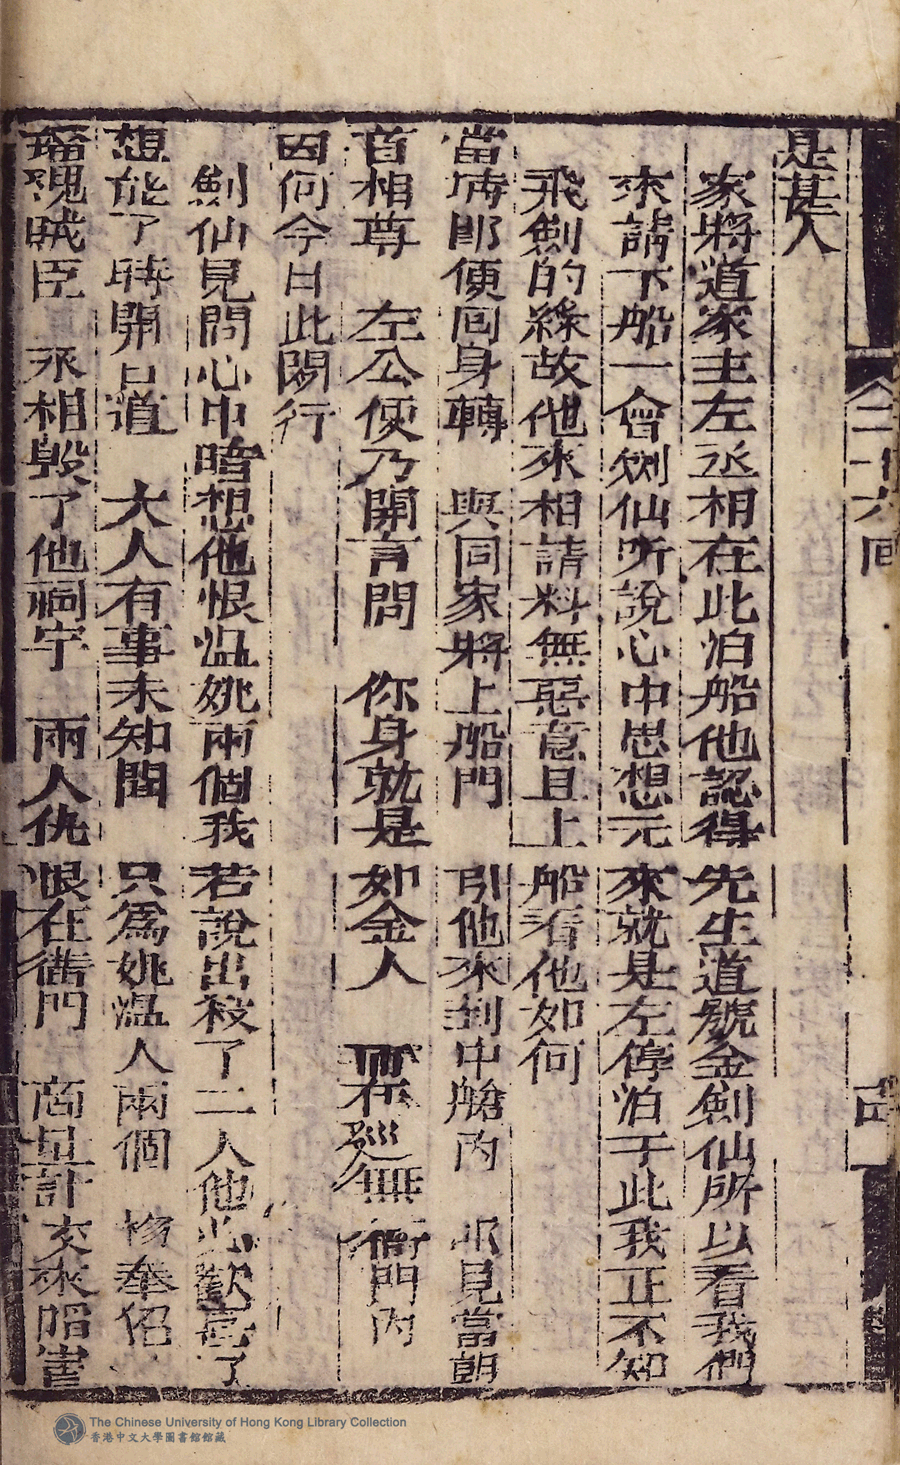 是甚人
家將道家主左丞相在此泊船他認得先生道號金劍仙所以看我們
來請下船一會劍仙听說心中思想元來就是左停泊于此我正不知
飛劍的綠故他來相請料無惡意且上船看他如何
當時郎便回身轉 與同家將上船門 引他來到中艙内 見當朝
首相尊 左公便乃開言問 你身就是如金人 無 衙門内
因何今日此閑行
劍仙見問心中暗想他恨温姚兩個我若說出殺了二人他必歡喜了
想能了時開口道 大人有事未知聞 只為姚温人兩個
賊臣 丞相毀了他祠宇 兩人仇恨在衙門 商量計 來
二十六回
The Chinese University of Hong Kong Library Collection
香港中文大學圖書館館藏